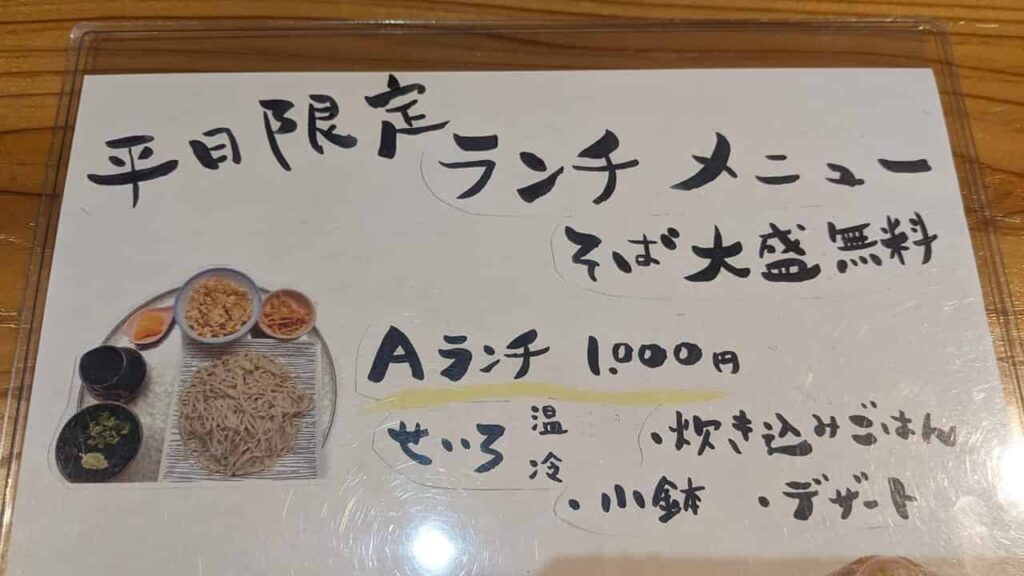 平日限定ランチメニュー
そば大盛無料
Aランチ 1.000円
せいろ 温 冷 ・炊き込みごはん
・小鉢 ・デザート